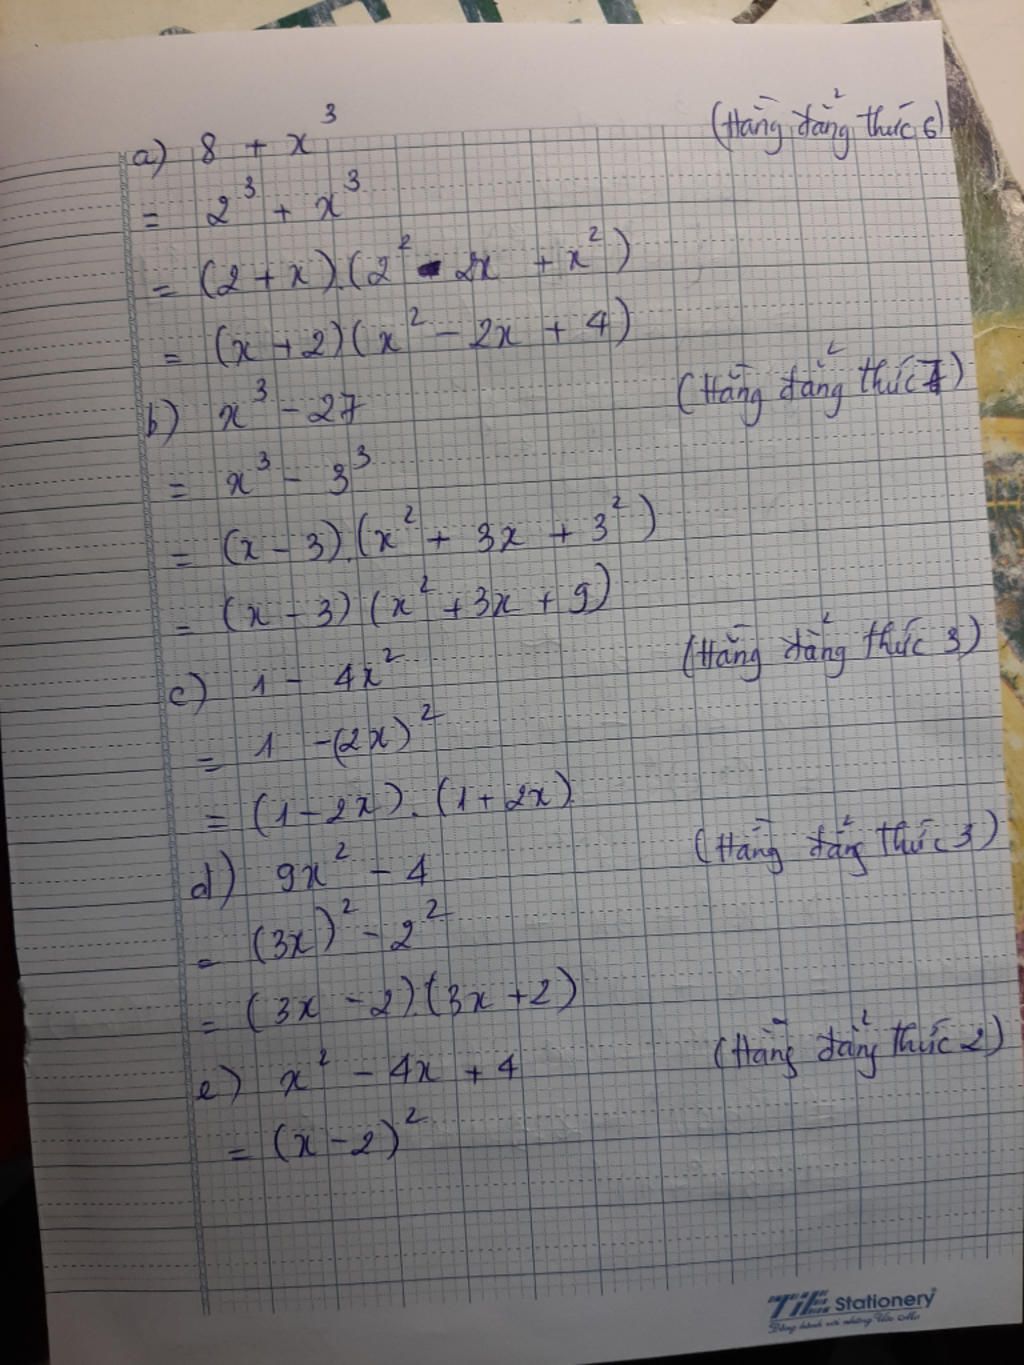 a) 8 + x³ (Hằng đẳng thức 6)
= 2³ + x³
= (2 + x).(2² - 2x + x²)
= (x + 2)(x² - 2x + 4)
b) x³ - 27 (Hằng đẳng thức 7)
= x³ - 3³
= (x - 3).(x² + 3x + 3²)
= (x - 3)(x² + 3x + 9)
c) 1 - 4x² (Hằng đẳng thức 3)
= 1 - (2x)²
= (1 - 2x).(1 + 2x)
d) 9x² - 4 (Hằng đẳng thức 3)
= (3x)² - 2²
= (3x - 2).(3x + 2)
e) x² - 4x + 4 (Hằng đẳng thức 2)
= (x - 2)²
Stationery
Đồng hành với những Ước Mơ